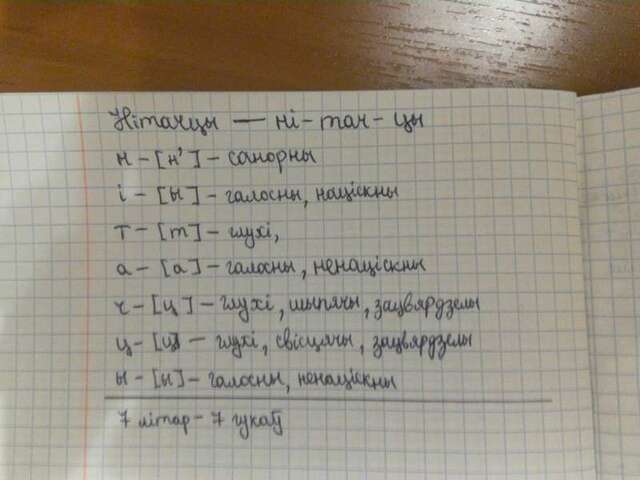 Нітачцы — ні-тач-цы
н - [н'] - санорны
і - [ы] - галосны, націскны
т - [т] - глухі,
а - [а] - галосны, ненаціскны
ч - [ц] - глухі, шыпячы, зацвярдзелы
ц - [ц] - глухі, свісцячы, зацвярдзелы
ы - [ы] - галосны, ненаціскны
7 літар - 7 гукаў